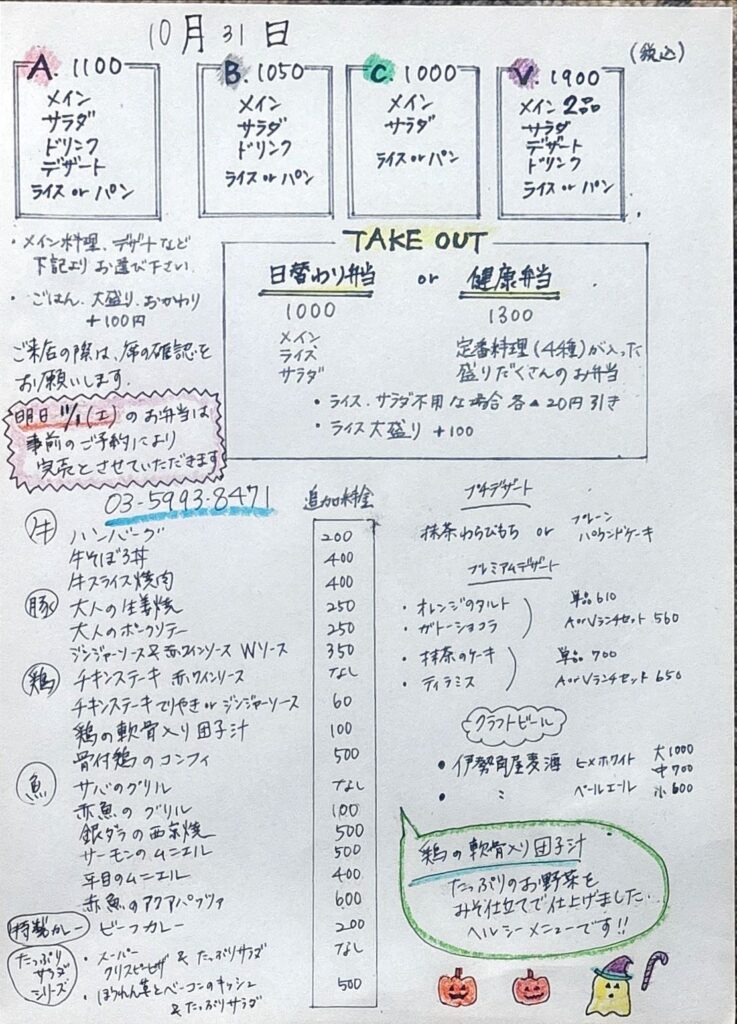 10月31日
(税込)
A. 1100
メイン
サラダ
ドリンク
デザート
ライス or パン
B. 1050
メイン
サラダ
ドリンク
ライス or パン
C 1000
メイン
サラダ
ライス or パン
V. 1900
メイン 2品
サラダ
デザート
ドリンク
ライス or パン
・メイン料理、デザートなど
下記よりお選び下さい
・ごはん、大盛り、おかわり
+100円
ご来店の際は、席の確認を
お願いします.
明日 11/1(土)のお弁当は
事前のご予約により
完売とさせていただきます
03-5993-8471
TAKE OUT
日替わり弁当 or 健康弁当
1000
メイン
ライス
サラダ
1300
定番料理(4種)が入った
盛りだくさんのお弁当
・ライス、サラダ不用な場合 各▲20円引き
・ライス大盛り +100
追加料金
牛
ハンバーグ 200
牛そぼろ丼 400
牛スライス焼肉 400
豚
大人の生姜焼 250
大人のポークソテー 250
ジンジャーソース&赤ワインソース Wソース 350
鶏
チキンステーキ 赤ワインソース なし
チキンステーキ てりやき or ジンジャーソース 60
鶏の軟骨入り団子汁 100
骨付鶏のコンフィ 500
魚
サバのグリル なし
赤魚のグリル 100
銀ダラの西京焼 500
サーモンのムニエル 500
平目のムニエル 400
赤魚のアクアパッツァ 600
特製カレー ビーフカレー 200
たっぷり
サラダ
シリーズ
・スーパー
クリスピーピザ & たっぷりサラダ なし
・ほうれん草とベーコンのキッシュ 500
& たっぷりサラダ
プチデザート
抹茶わらびもち or プレーン
パウンドケーキ
プレミアムデザート
・オレンジのタルト
・ガトーショコラ
単品 610
A or Vランチセット 560
・抹茶のケーキ
・ティラミス
単品 700
A or Vランチセット 650
クラフトビール
・伊勢角屋麦酒 ヒメホワイト
・ 〃 ペールエール
大1000
中700
小600
鶏の軟骨入り団子汁
たっぷりのお野菜を
みそ仕立てで仕上げました.
ヘルシーメニューです!!